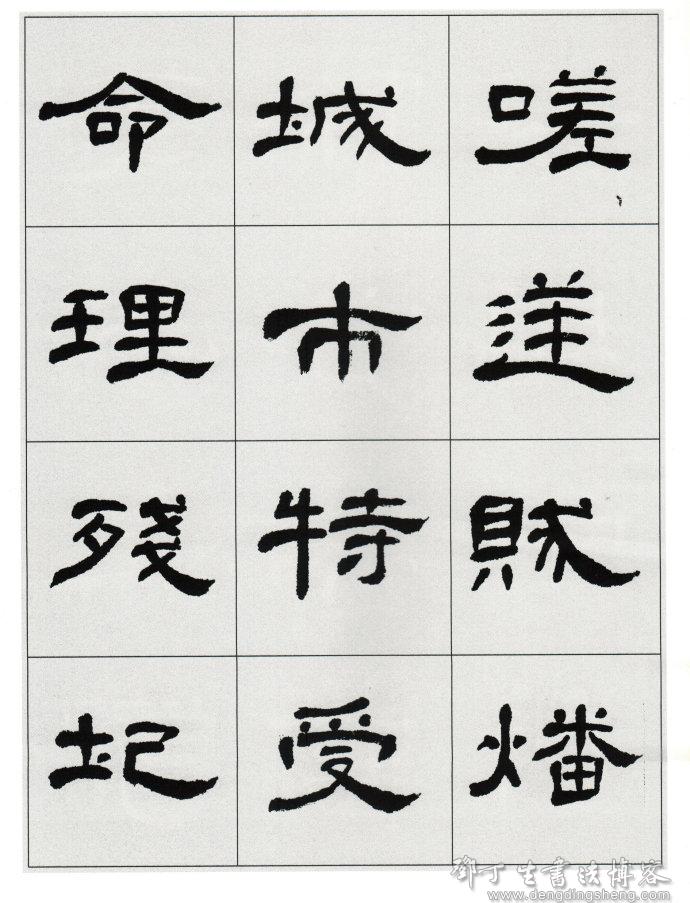 嗟逆賊燔
城市特受
命理殘圮
鄧丁生書法博客
www.dengdingsheng.com